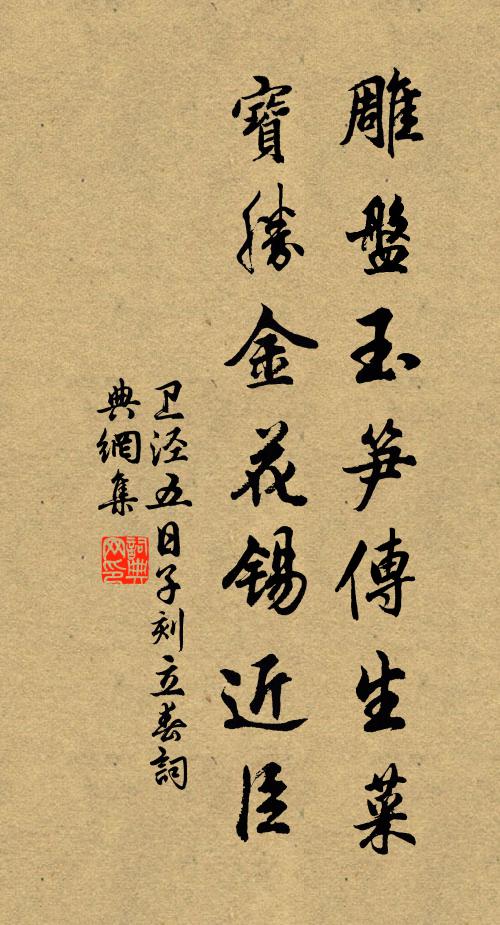 雕盤玉笋傳生菜
寶勝金花錫近臣
卫泾五日子刻立春詞
典網集
詞典網印